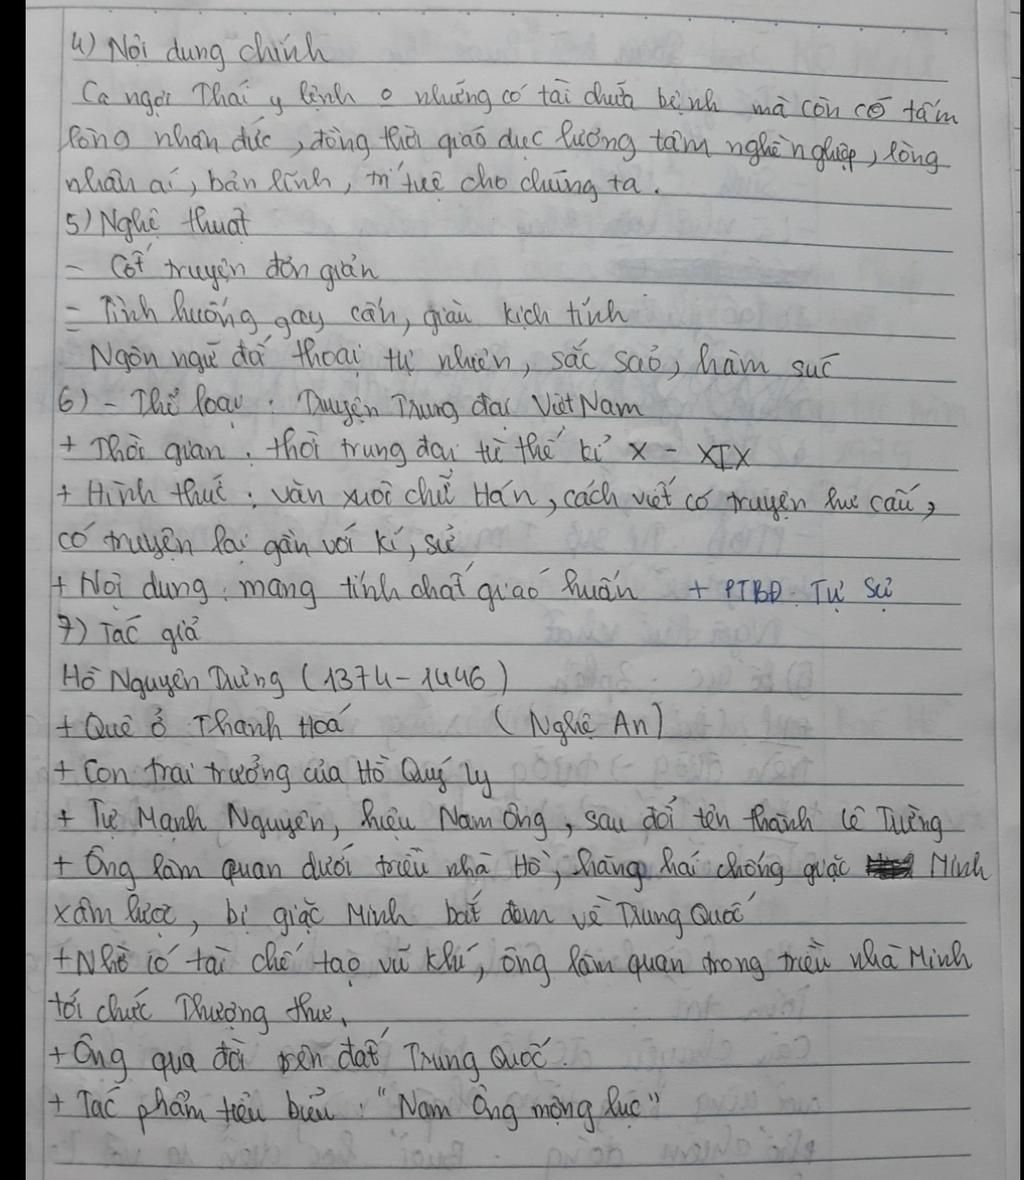 4) Nội dung chính
Ca ngợi Thái y lệnh o những có tài chữa bệnh mà còn có tấm
lòng nhân đức, đồng thời giáo dục lương tâm nghề nghiệp, lòng
nhân ái, bản lĩnh, trí tuệ cho chúng ta.
5) Nghệ thuật
- Cốt truyện đơn giản
- Tình huống gay cấn, giàu kịch tính
Ngôn ngữ đối thoại tự nhiên, sắc sảo, hàm súc
6) - Thể loại : Truyện Trung đại Việt Nam
+ Thời gian : thời trung đại từ thế kỉ X - XIX
+ Hình thức : văn xuôi chữ Hán, cách viết có truyện hư cấu,
có truyện lại gần với kí, sử
+ Nội dung : mang tính chất giáo huấn + PTBĐ : Tự sự
7) Tác giả
Hồ Nguyên Trừng (1374-1446)
+ Quê ở Thanh Hoá (Nghệ An)
+ Con trai trưởng của Hồ Quý Ly
+ Tự Mạnh Nguyên, hiệu Nam Ông, sau đổi tên thành Lê Trừng
+ Ông làm quan dưới triều nhà Hồ, hăng hái chống giặc Minh
xâm lược, bị giặc Minh bắt đem về Trung Quốc
+ Nhờ có tài chế tạo vũ khí, ông làm quan trong triều nhà Minh
tới chức Thượng thư.
+ Ông qua đời trên đất Trung Quốc.
+ Tác phẩm tiêu biểu : "Nam Ông mộng lục"